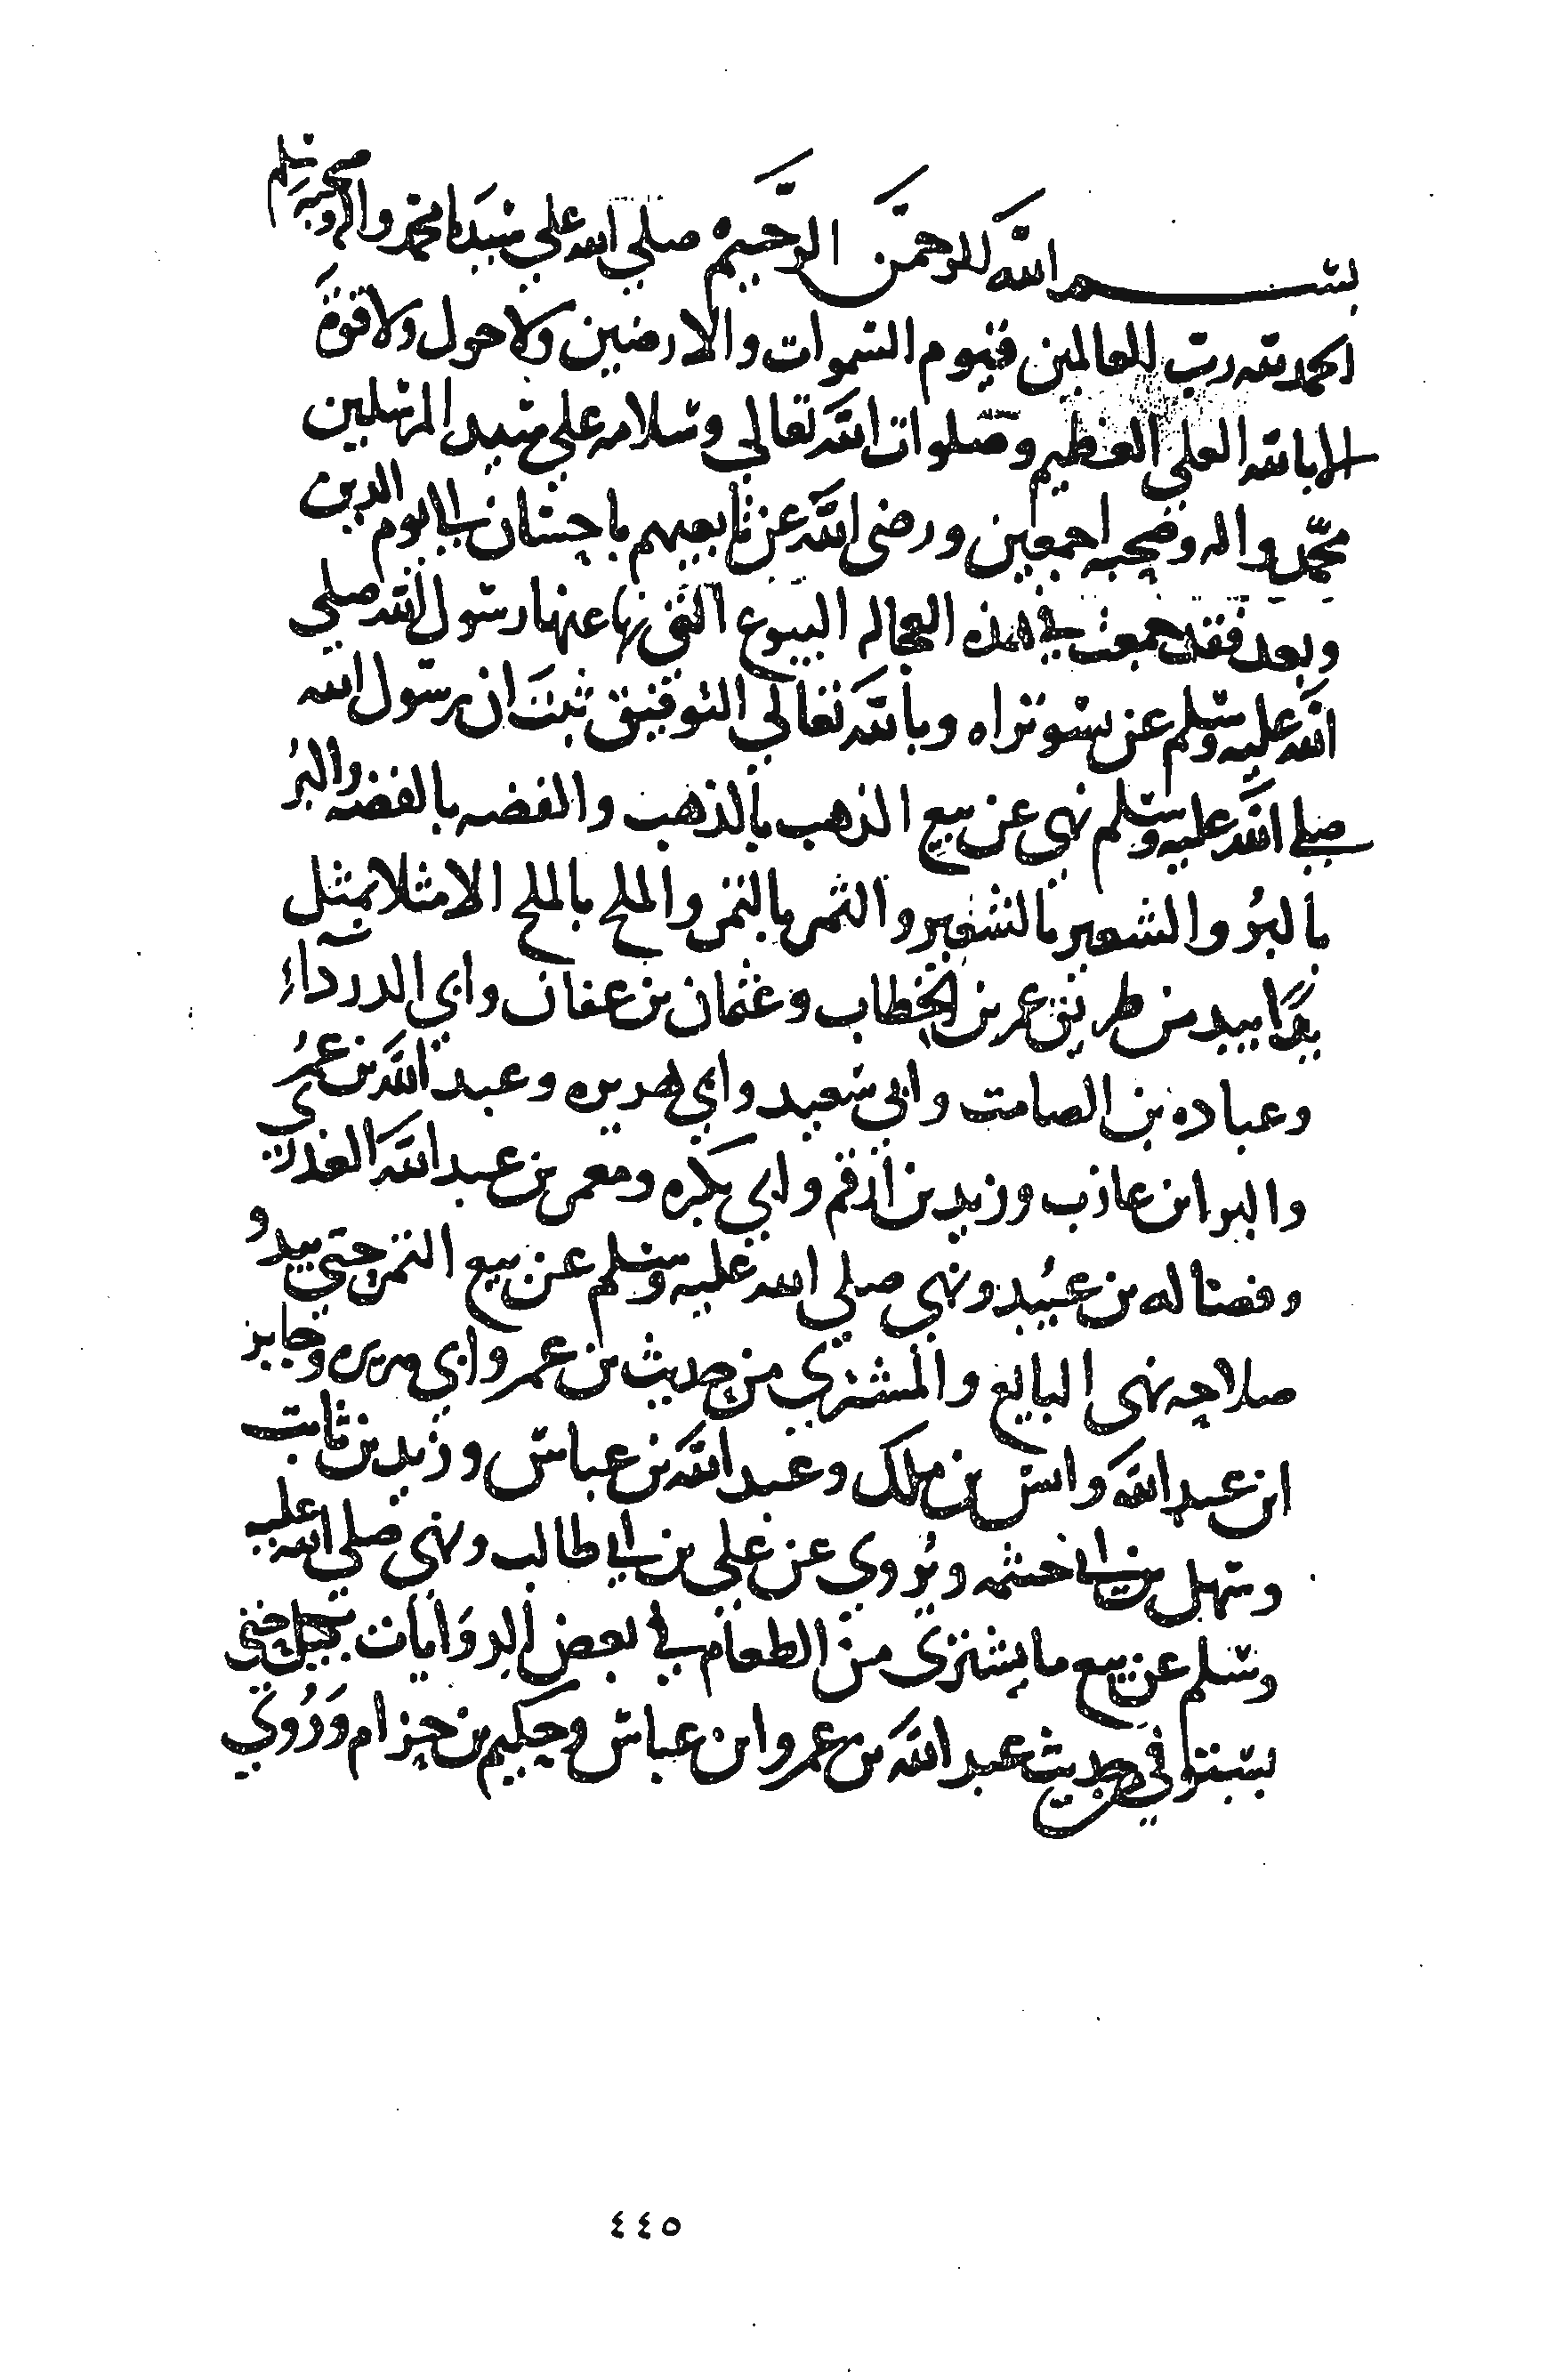 بسم الله الرحمن الرحيم صلي الله علي سيدنا محمد واله وصحبه وسلم
الحمد لله رب العالمين قيوم السموات والارضين ولا حول ولا قوة
الا بالله العلي العظيم وصلوات الله تعالي وسلامه علي سيد المرسلين
محمد واله وصحبه اجمعين ورضى الله عن تابعيهم باحسان الي يوم الدين
وبعد فقد جمعت في هذه العجاله البيوع التي نها عنها رسول الله صلي
الله عليه وسلم عن بشو تراه وبالله تعالي التوفيق ثبت ان رسول الله
صلي الله عليه وسلم نهى عن بيع الذهب بالذهب والفضه بالفضه والبُر
بالبُر والشعير بالشعير والتمر بالتمر والملح بالملح الا مثلا بمثل
يدًا بيد من طريق عمر بن الخطاب وعثمان بن عفان وابي الدرداء
وعباده بن الصامت وابي سعيد وابي هريره وعبد الله بن عمُر
والبرا بن عازب وزيد بن ارقم وابي بكره ومعمر بن عبد الله العدوي
وفضاله بن عبُيد ونهي صلي الله عليه وسلم عن بيع التمر حتي يبدو
صلاحه نهى البايع والمشتري من حديث بن عمر وابي هريره وجابر
ابن عبد الله وانس بن ملك وعبد الله بن عباس وزيد بن ثابت
وسهل بن ابي حثمه ويُروي عن علي بن ابي طالب ونهي صلي الله عليه
وسلم عن بيع ما يشترى من الطعام في بعض الروايات بكيل حتي
يستوفي حديث عبد الله بن عمر وابن عباس وحكيم بن حزام وَرُوي
٤٤٥